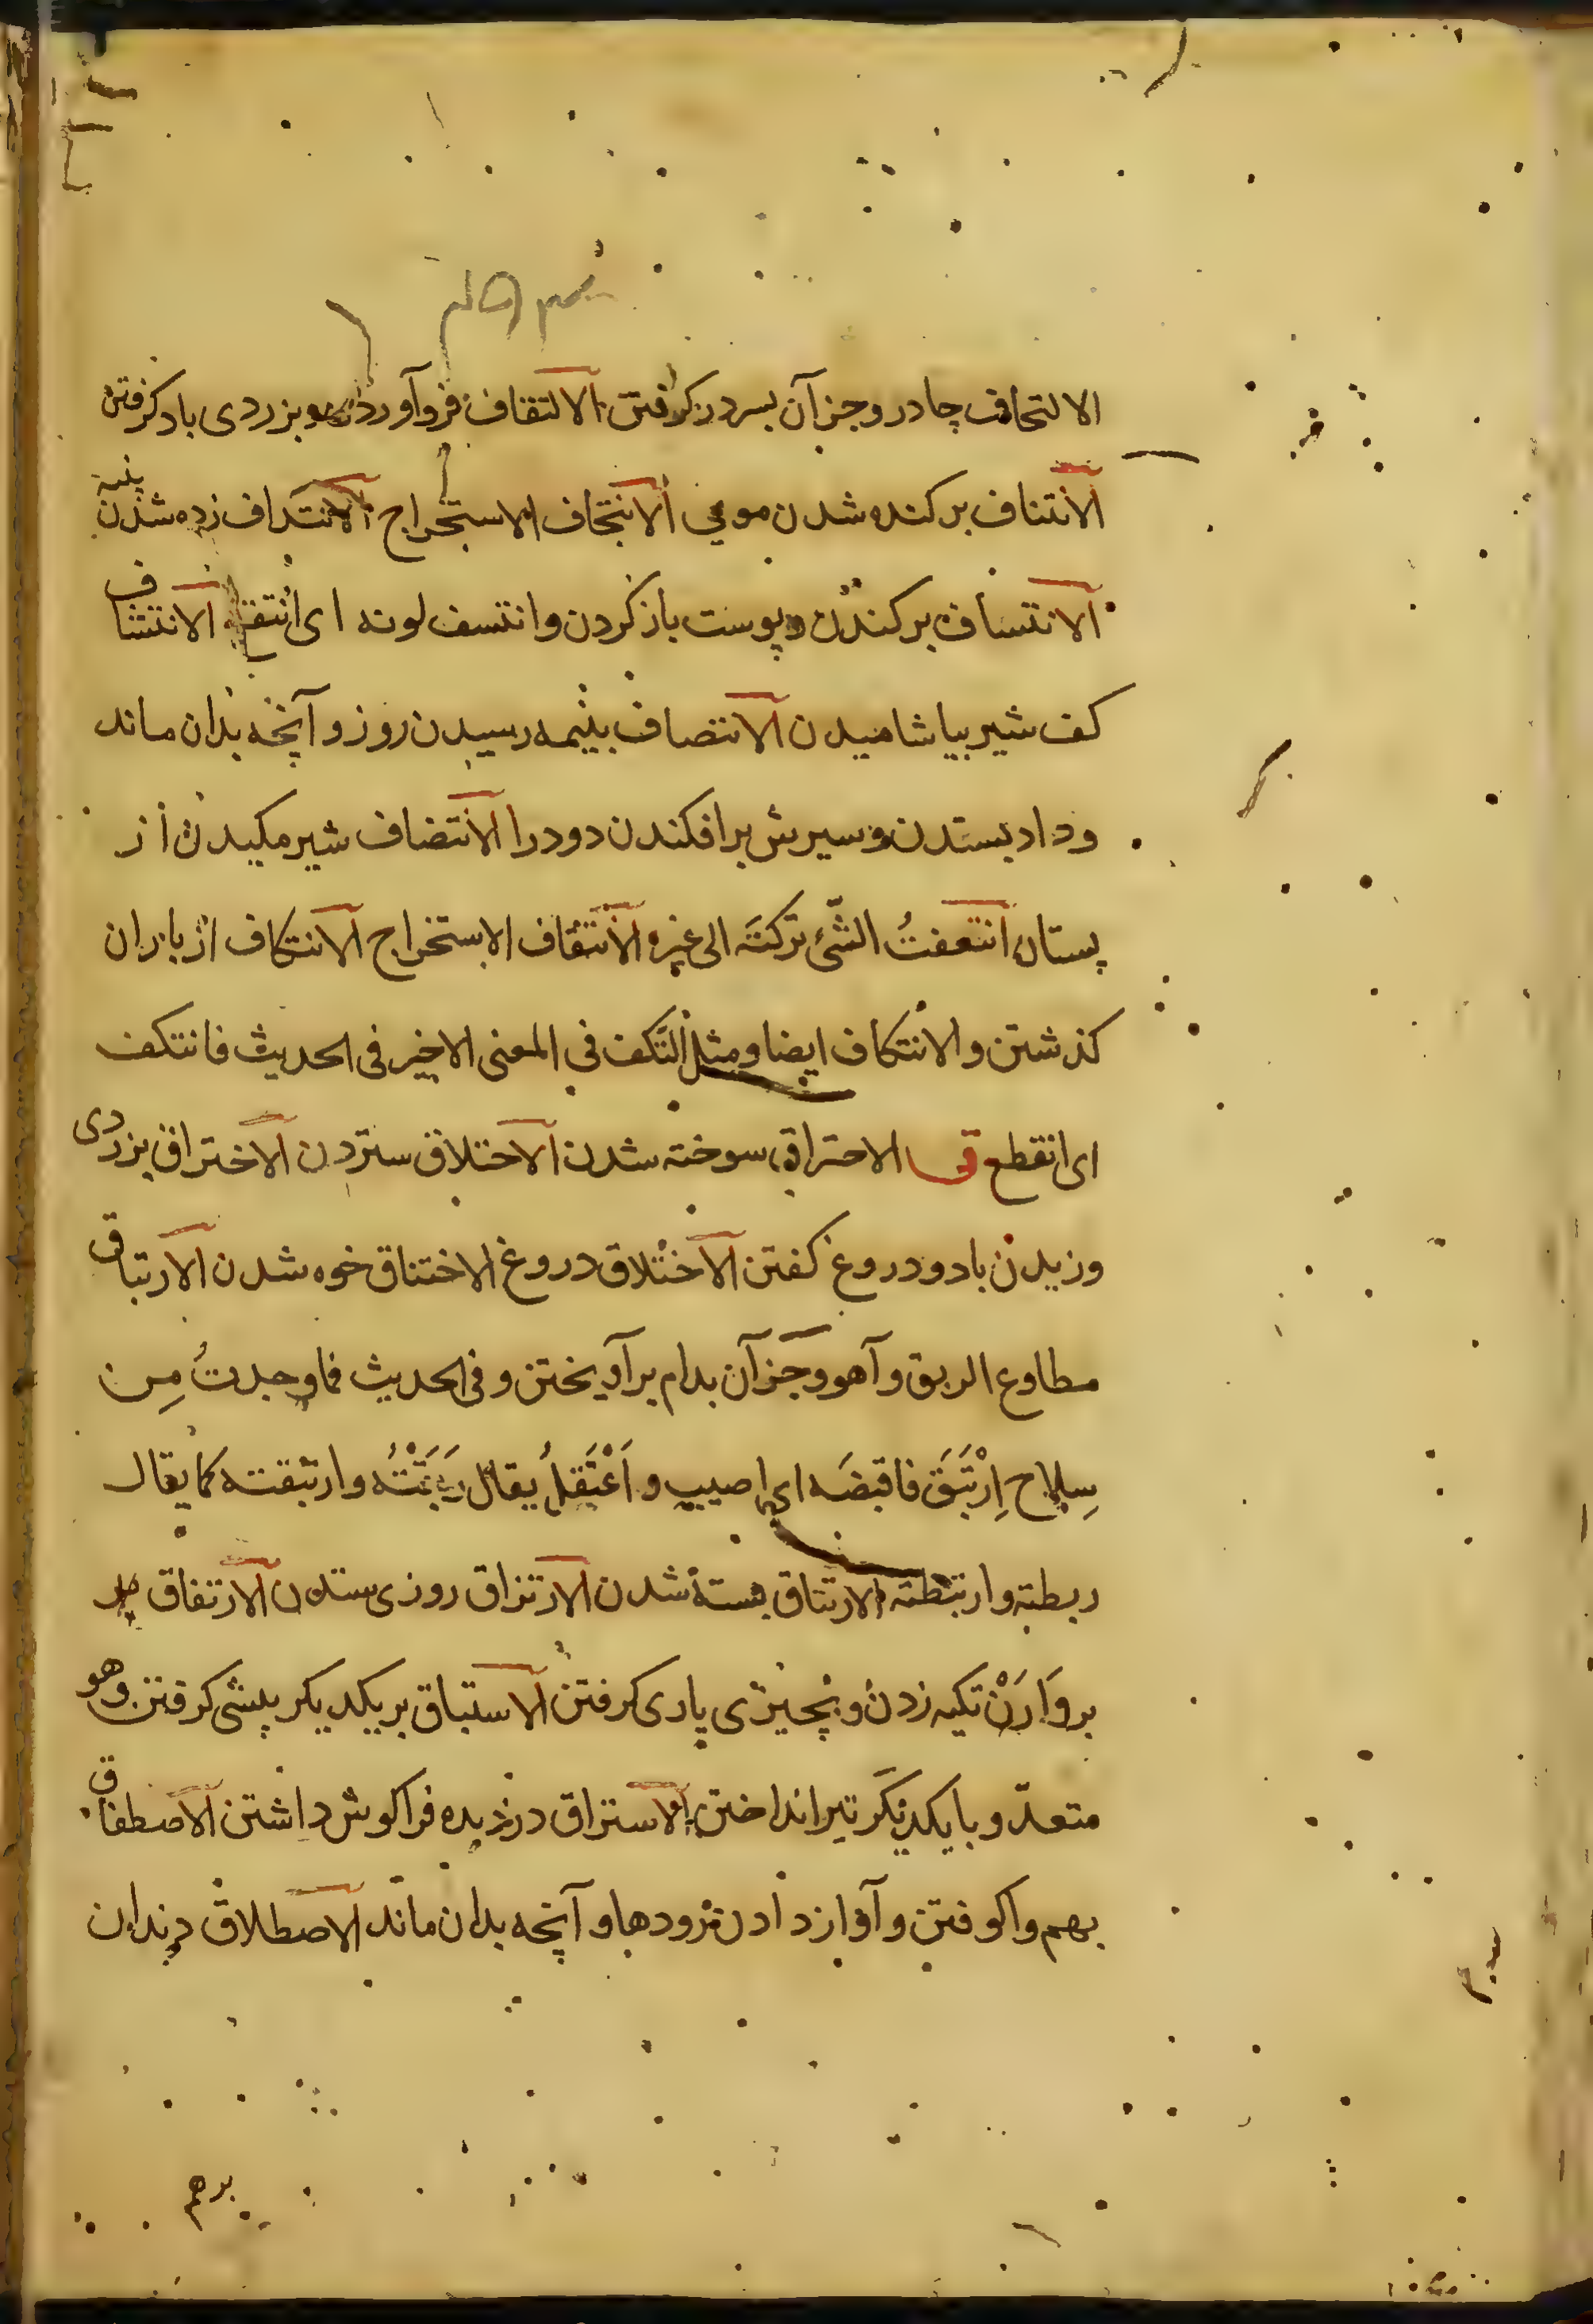 الالتحاف چادر و جز آن بسر در گرفتن الالتقاف فرو آوردن و بزودی یاد گرفتن
الانتتاف برکنده شدن موی الانتخاف الاستخراج الانتداف زده شدن پنبه
الانتساف برکندن و پوست باز کردن وانتسف لونه ای انتقع الانتشاف
کف شیر بیاشامیدن الانتصاف بنیمه رسیدن روز و آنچه بدان ماند
و داد بستدن و سیرش برافکندن دو درا الانتضاف شیر مکیدن از
پستان انتعفتُ الشّئ ترکتَه الی غیره الانتقاف الاستخراج الانتکاف از باران
کذشتن والانتکاف ایضا ومثل النکف فی المعنی الاخیر فی الحدیث فانتکف
ای انقطع ق الاحتراق سوخته شدن الاحتلاق ستردن الاختراق بزودی
وزیدن باد و دروغ کفتن الاختلاق دروغ الاختناق خوه شدن الارتباق
مطاوع الربق و آهو و جز آن بدام برآویختن و فی الحدیث فما وجدتُ مِن
سِلاح اِرْتَبَقَ فاقبضَه ای اصیب و اَعْتَقِلُ یقال رَبَقْتُه وارتبقته کما یقال
ربطته وارتبطته الارتتاق بسته شدن الارتزاق روزی ستدن الارتفاق
بر وَارَنْ تکیه زدن و بچیزی یاری کرفتن الاستباق بر یکدیکر پیشی کرفتن وهو
متعدّ و با یکدیکر تیر انداختن الاستراق دزدیده فرا کوش داشتن الاصطفاق
بهم واکوفتن و آواز دادن رودها و آنچه بدان ماند الاصطلاق دندان
برهم